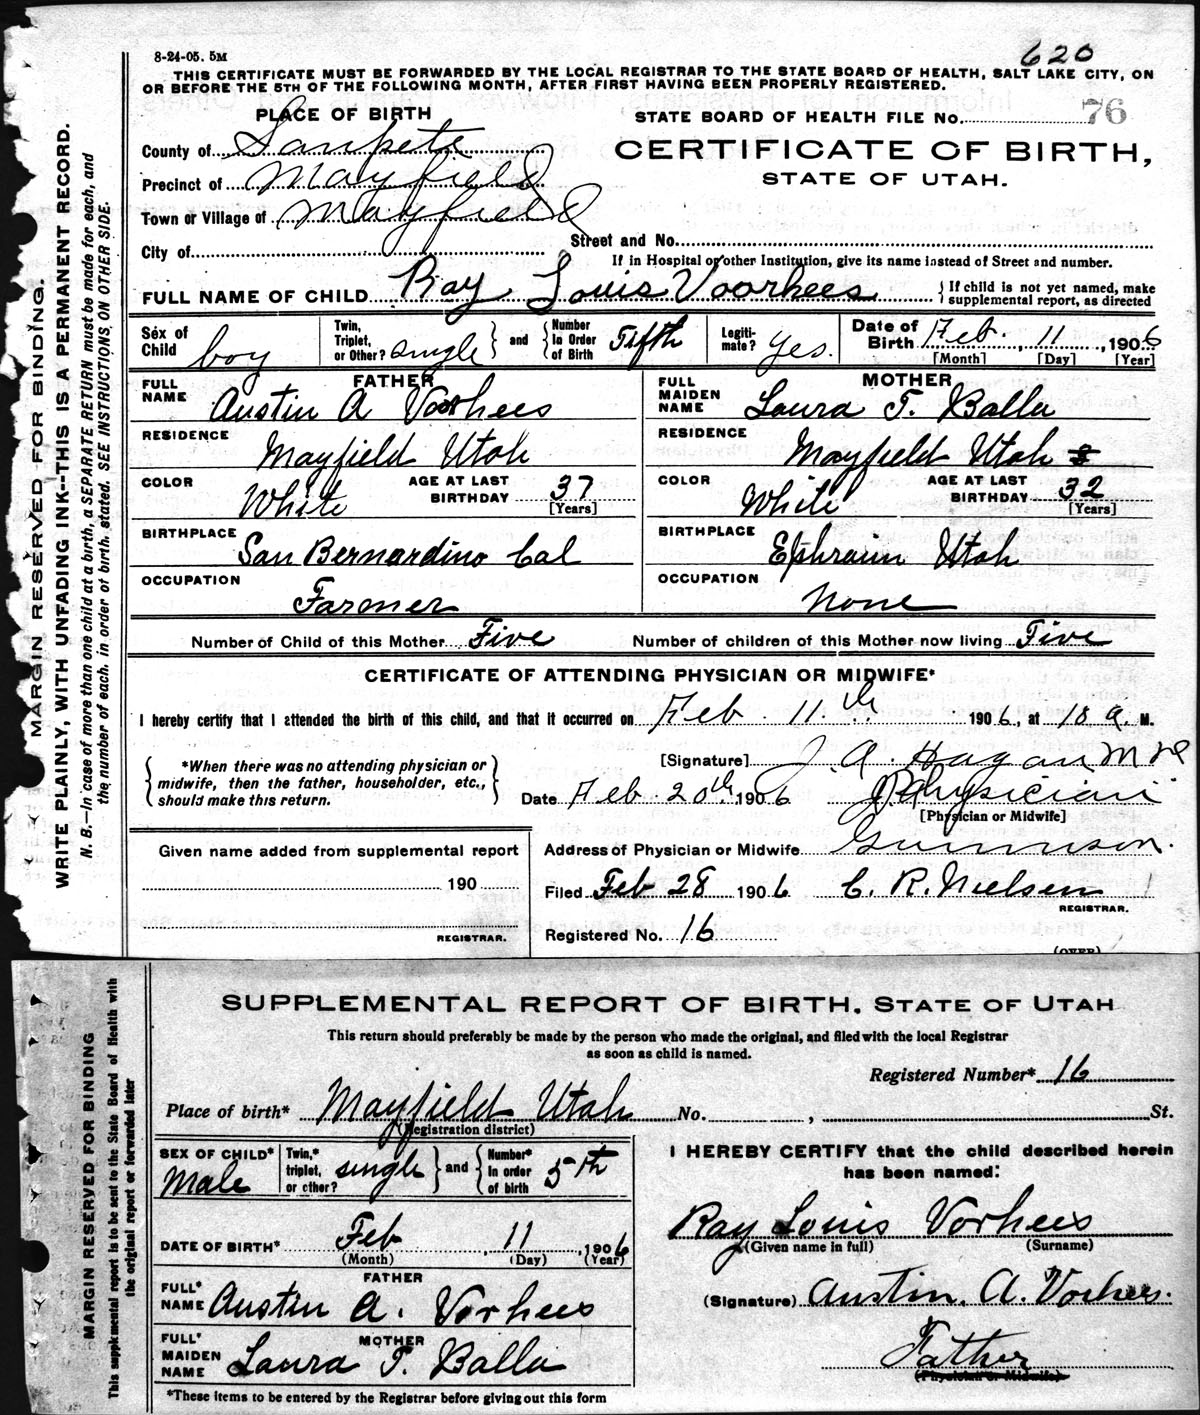 8-24-05. 5M
620
THIS CERTIFICATE MUST BE FORWARDED BY THE LOCAL REGISTRAR TO THE STATE BOARD OF HEALTH, SALT LAKE CITY, ON
OR BEFORE THE 5TH OF THE FOLLOWING MONTH, AFTER FIRST HAVING BEEN PROPERLY REGISTERED.
PLACE OF BIRTH
STATE BOARD OF HEALTH FILE No. 76
County of Sanpete
CERTIFICATE OF BIRTH,
STATE OF UTAH.
Precinct of Mayfield
Town or Village of Mayfield
City of
Street and No.
If in Hospital or other Institution, give its name instead of Street and number.
FULL NAME OF CHILD Ray Louis Voorhees
If child is not yet named, make supplemental report, as directed
Sex of Child boy
Twin, Triplet, or Other? single and Number In Order of Birth Fifth
Legitimate? yes.
Date of Birth Feb. 11, 1906
[Month] [Day] [Year]
FATHER
FULL NAME Austin A Voorhees
MOTHER
FULL MAIDEN NAME Laura T. Balle
RESIDENCE Mayfield Utah
RESIDENCE Mayfield Utah
COLOR White AGE AT LAST BIRTHDAY 37 [Years]
COLOR White AGE AT LAST BIRTHDAY 32 [Years]
BIRTHPLACE San Bernardino Cal
BIRTHPLACE Ephraim Utah
OCCUPATION Farmer
OCCUPATION None
Number of Child of this Mother Five Number of children of this Mother now living Five
CERTIFICATE OF ATTENDING PHYSICIAN OR MIDWIFE*
I hereby certify that I attended the birth of this child, and that it occurred on Feb. 11th 1906, at 10 a. M.
*When there was no attending physician or
midwife, then the father, householder, etc.,
should make this return.
[Signature] J. A. Hagan M D
Date Feb. 20th 1906 Physician
[Physician or Midwife]
Given name added from supplemental report
190
REGISTRAR.
Address of Physician or Midwife Gunnison.
Filed Feb 28 1906 C. R. Nielsen
REGISTRAR.
Registered No. 16
(OVER)
MARGIN RESERVED FOR BINDING.
WRITE PLAINLY, WITH UNFADING INK--THIS IS A PERMANENT RECORD.
N. B.—In case of more than one child at a birth, a SEPARATE RETURN must be made for each, and
the number of each. in order of birth. stated. SEE INSTRUCTIONS ON OTHER SIDE.
SUPPLEMENTAL REPORT OF BIRTH, STATE OF UTAH
This return should preferably be made by the person who made the original, and filed with the local Registrar
as soon as child is named.
Registered Number* 16
Place of birth* Mayfield Utah No. , St.
(Registration district)
SEX OF CHILD* Male
Twin,* triplet, or other? single and Number* In order of birth 5th
I HEREBY CERTIFY that the child described herein
has been named:
DATE OF BIRTH* Feb 11, 1906
(Month) (Day) (Year)
Ray Louis Vorhees
(Given name in full) (Surname)
FATHER
FULL* NAME Austin A. Vorhees
(Signature) Austin. A. Vorhees.
MOTHER
FULL* MAIDEN NAME Laura T. Balle
Father
(Physician or Midwife)
*These items to be entered by the Registrar before giving out this form
MARGIN RESERVED FOR BINDING
This supplemental report is to be sent to the State Board of Health with
the original report or forwarded later